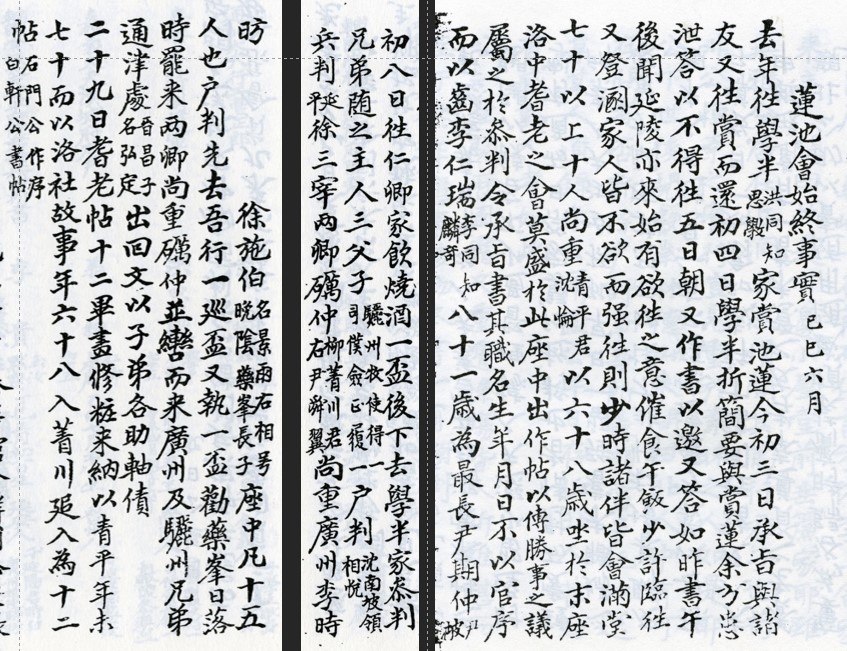 蓮池會始終事實 己巳六月
去年往學半洪同知思毅家賞池蓮今初三日承旨與諸
友又往賞而還初四日學半折簡要與賞蓮余方患
泄答以不得往五日朝又作書以邀又答如昨書午
後聞延陵亦來始有欲往之意催食午飯少許臨往
又登溷家人皆不欲而强往則少時諸伴皆會滿堂
七十以上十人尚重青平君沈惀以六十八歲坐於末座
洛中耆老之會莫盛於此座中出作帖以傳勝事之議
屬之於叅判令承旨書其職名生年月日不以官序
而以齒李仁瑞李同知麟奇八十一歲為最長尹期仲尹坡
初八日往仁卿家飮燒酒一盃後下去學半家叅判
兄弟随之主人三父子驪州牧使得一司僕僉正履一户判沈南坡領相悅
兵判延平徐三宰两卿礪仲柳菁川君右尹舜翼尚重廣州李時
昉 徐施伯名景雨右相号晚陰藥峯長子座中凡十五
人也户判先去吾行一巡盃又執一盃勸藥峯日落
時罷来两卿尚重礪仲並轡而来廣州及驪州兄弟
通津處晉昌子名弘定出回文以子弟各助軸債
二十九日耆老帖十二畢畵修粧来納以青平年未
七十而以洛社故事年六十八入菁川追入為十二
帖石門公作序白軒公書帖